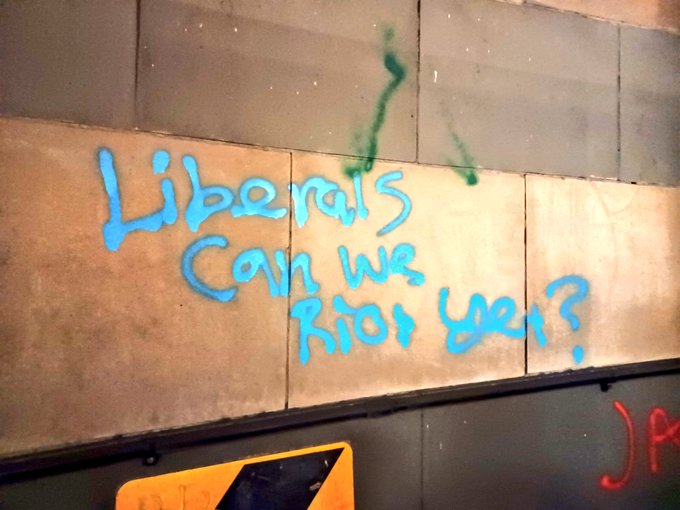 Liberals
Can we
Riot yet?
JA